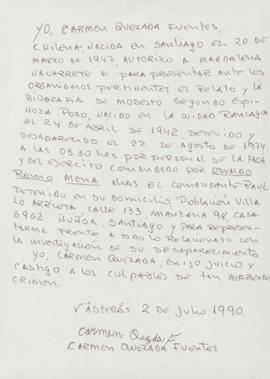 YO, CARMEN QUEZADA FUENTES,
CHILENA, NACIDA EN SANTIAGO EL 20 DE
MARZO DE 1947, AUTORIZO A MAGDALENA
NAVARRETE F. PARA PRESENTAR ANTE LOS
ORGANISMOS PERTINENTES EL RELATO Y LA
BIOGRAFÍA DE MODESTO SEGUNDO ESPI-
NOZA POZO, NACIDO EN LA CIUDAD RANCAGUA
EL 24 DE ABRIL DE 1942, DETENIDO Y
DESAPARECIDO EL 22 DE AGOSTO DE 1974
A LAS 05.30 HRS POR PERSONAL DE LA FACH
Y DEL EJERCITO COMANDADO POR OSVALDO
ROMO MENA ALIAS EL COMANDANTE RAUL
DETENIDO EN SU DOMICILIO, POBLACIÓN VILLA
LO ARRIETA CALLE 133, MANZANA 98, CASA
6962 ÑUÑOA, SANTIAGO Y PARA REPRESEN-
TARME FRENTE A TODO LO RELACIONADO CON
LA INVESTIGACIÓN DE SU DESAPARECIMIENTO
YO, CARMEN QUEZADA, EXIJO JUICIO Y
CASTIGO A LOS CULPABLES DE TAN HORRENDO
CRIMEN.
VÄSTERÅS 2 DE JULIO 1990
Carmen Quezada F.
CARMEN QUEZADA FUENTES